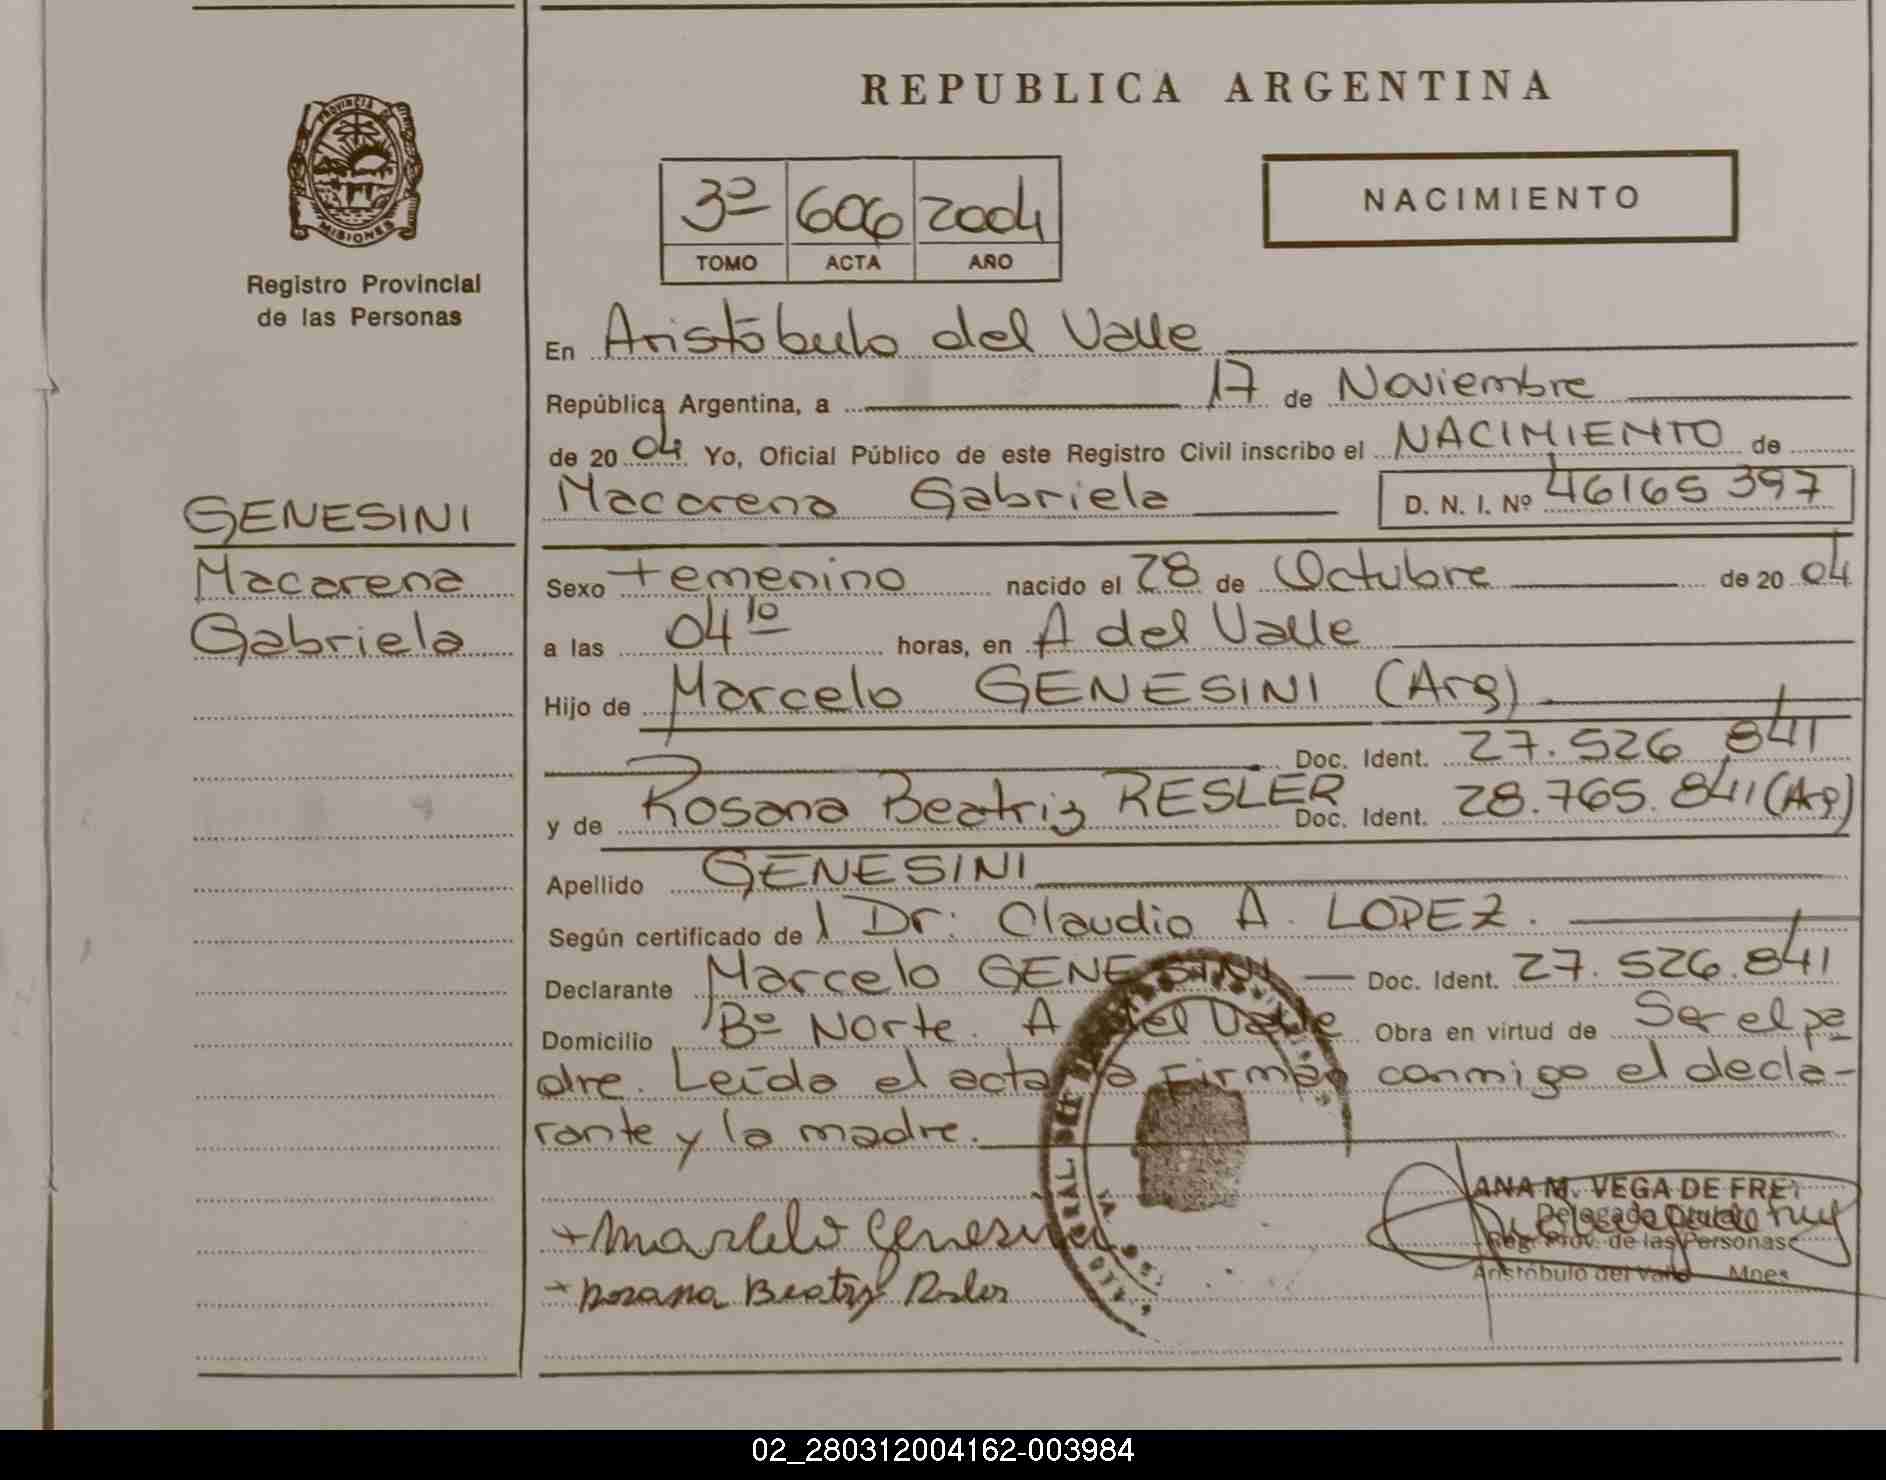 REPUBLICA ARGENTINA
PROVINCIA DE
MISIONES
Registro Provincial
de las Personas
3º 606 2004
TOMO ACTA AÑO
NACIMIENTO
En Aristóbulo del Valle
República Argentina, a 17 de Noviembre
de 20 04 Yo, Oficial Público de este Registro Civil inscribo el NACIMIENTO de
Macarena Gabriela D. N. I. Nº 46165397
GENESINI
Macarena
Gabriela
Sexo Femenino nacido el 28 de Octubre de 20 04
a las 04 10 horas, en A del Valle
Hijo de Marcelo GENESINI (Arg)
Doc. Ident. 27.526 841
y de Rosana Beatriz RESLER Doc. Ident. 28.765.841 (Arg)
Apellido GENESINI
Según certificado de l Dr: Claudio A. LOPEZ.
Declarante Marcelo GENESINI Doc. Ident. 27.526.841
Domicilio Bº Norte. A del Valle Obra en virtud de Ser el pa
dre. Leída el acta la Firman conmigo el decla-
rante y la madre.
Marcelo Genesini
Rosana Beatriz Resler
ANA M. VEGA DE FREY
Delegada
Reg. Prov. de las Personas
Aristóbulo del Valle Mnes
02_280312004162-003984